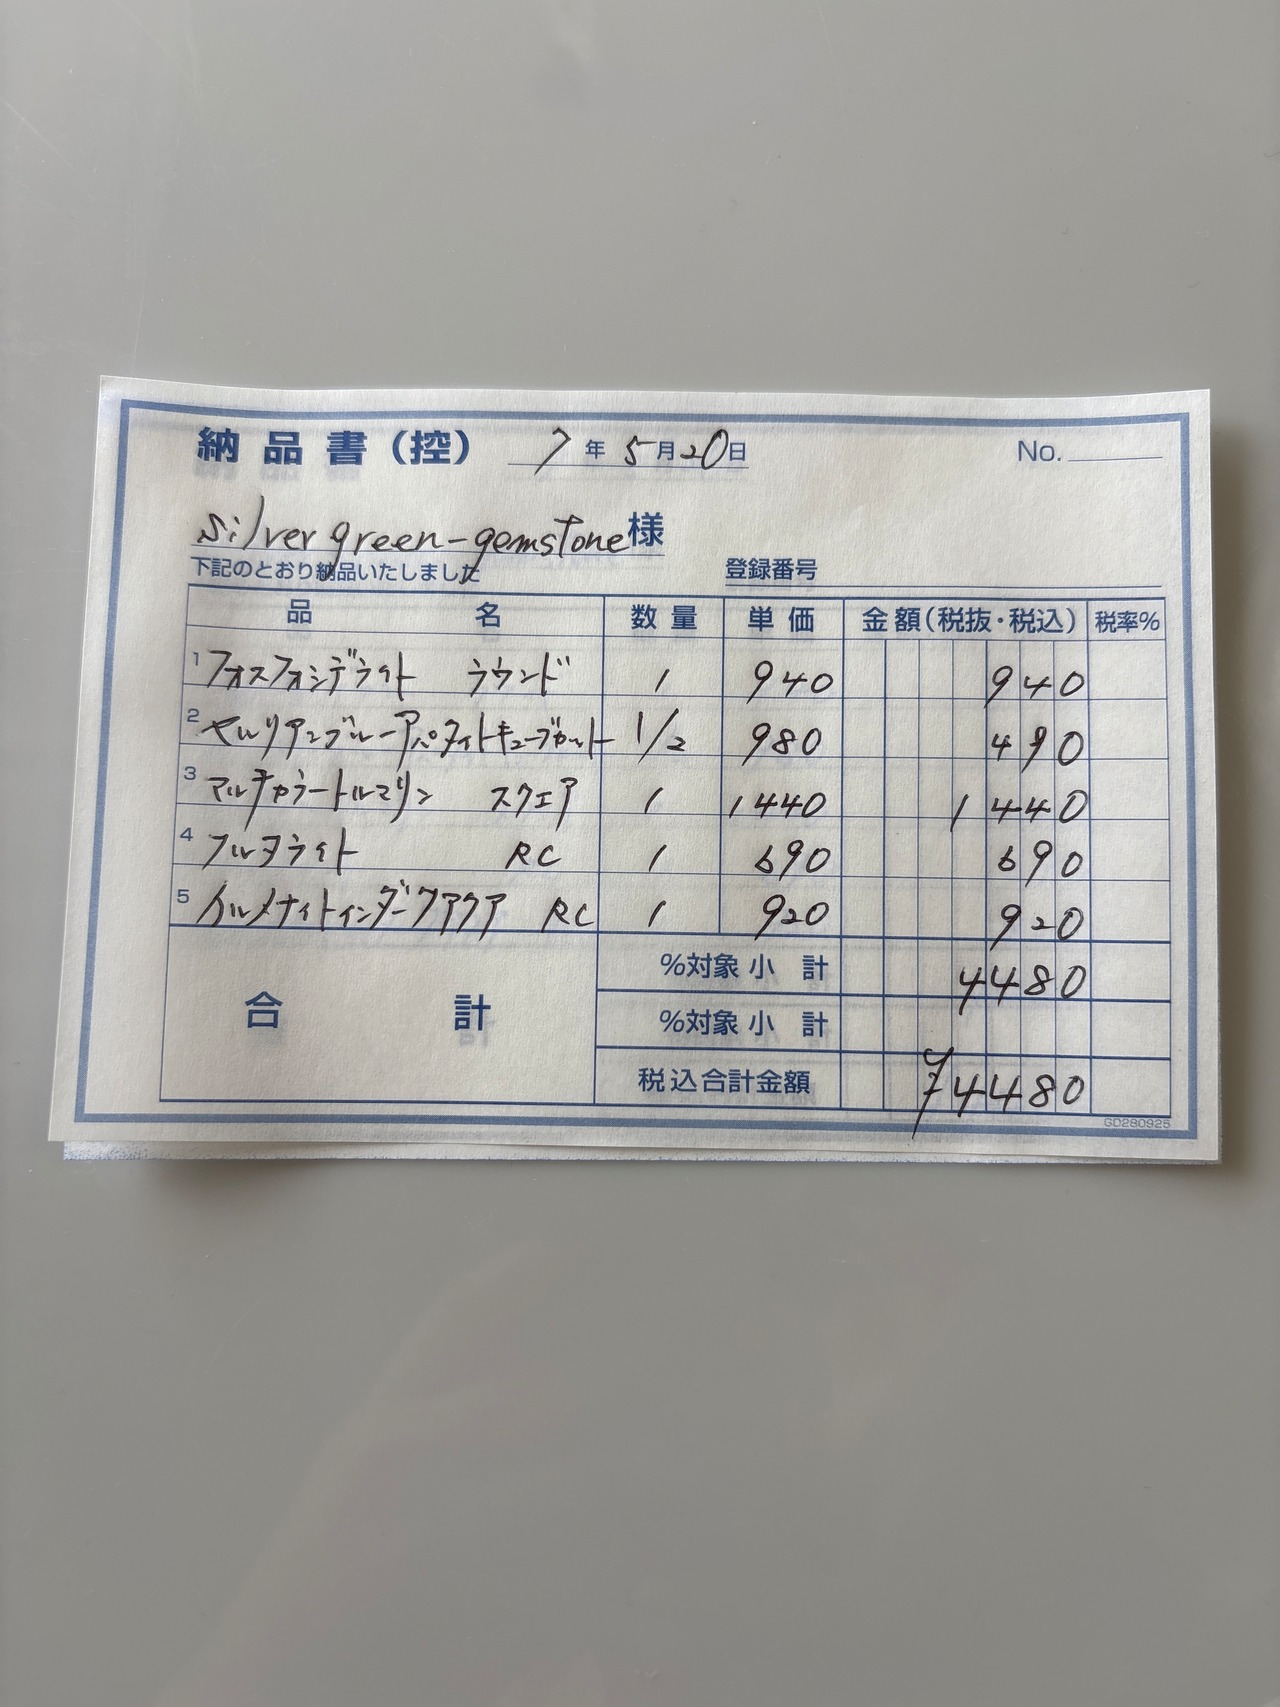 納品書(控) 7年5月20日 No.
silver green-gemstone様
下記のとおり納品いたしました 登録番号
品名 数量 単価 金額(税抜・税込) 税率%
1 フォスフォシデライト ラウンド 1 940 940
2 セルリアンブルーアパタイトキューブカット 1/2 980 490
3 マルチカラートルマリン スクエア 1 1440 1440
4 フルヲライト RC 1 690 690
5 イルメナイトインダークアクア RC 1 920 920
合計
%対象小計 4480
%対象小計
税込合計金額 ¥4480
GD280925